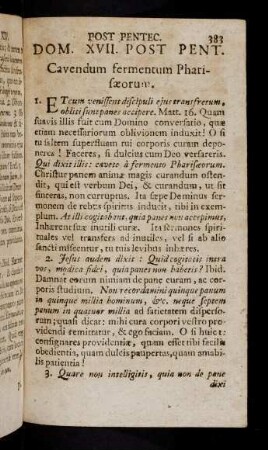 POST PENTEC. 383
DOM. XVII. POST PENT.
Cavendum fermentum Phari-
sæorum.
1. ET cum venissent discipuli ejus trans fretum,
obliti sunt panes accipere. Matt. 16. Quam
suavis illis fuit cum Domino conversatio, quæ
etiam necessariorum oblivionem induxit! O si
tu saltem superfluam tui corporis curam depo-
neres! Faceres, si dulcius cum Deo versareris.
Qui dixit illis: cavete à fermento Pharisæorum.
Christus panem animæ magis curandum osten-
dit, qui est verbum Dei, & curandum, ut sit
sinceras, non corruptus. Ita sæpe Deminus ser-
monem de rebus spiritûs inducit, tibi in exem-
plum. At illi cogitabant, quia panes non accepimus,
Inhærent suæ inutili curæ. Ita sermones spiri-
tuales vel transfers ad inutiles, vel si ab alio
sancti misceantur, tu tuis levibus inhæres.
2. Jesus autem dixit: Quid cogitatis intra
vos, modicæ fidei, quia panes non habetis? Ibid.
Damnat eorum nimiam de pane curam, ac cor-
poris studium. Non recordamini quinque panum
in quinque millia hominum, &c. neque septem
panum in quatuor millia ad satietatem disperso-
rum; quasi dicat: mihi cura corpori vestro pro-
videndi remittatur, & ego faciam. O si huic te
consignares providentiæ, quam esset tibi facilis
obedientia, quam dulcis paupertas, quam amabi-
lis patientia!
3. Quare non intelligitis, quia non de pane
dixi